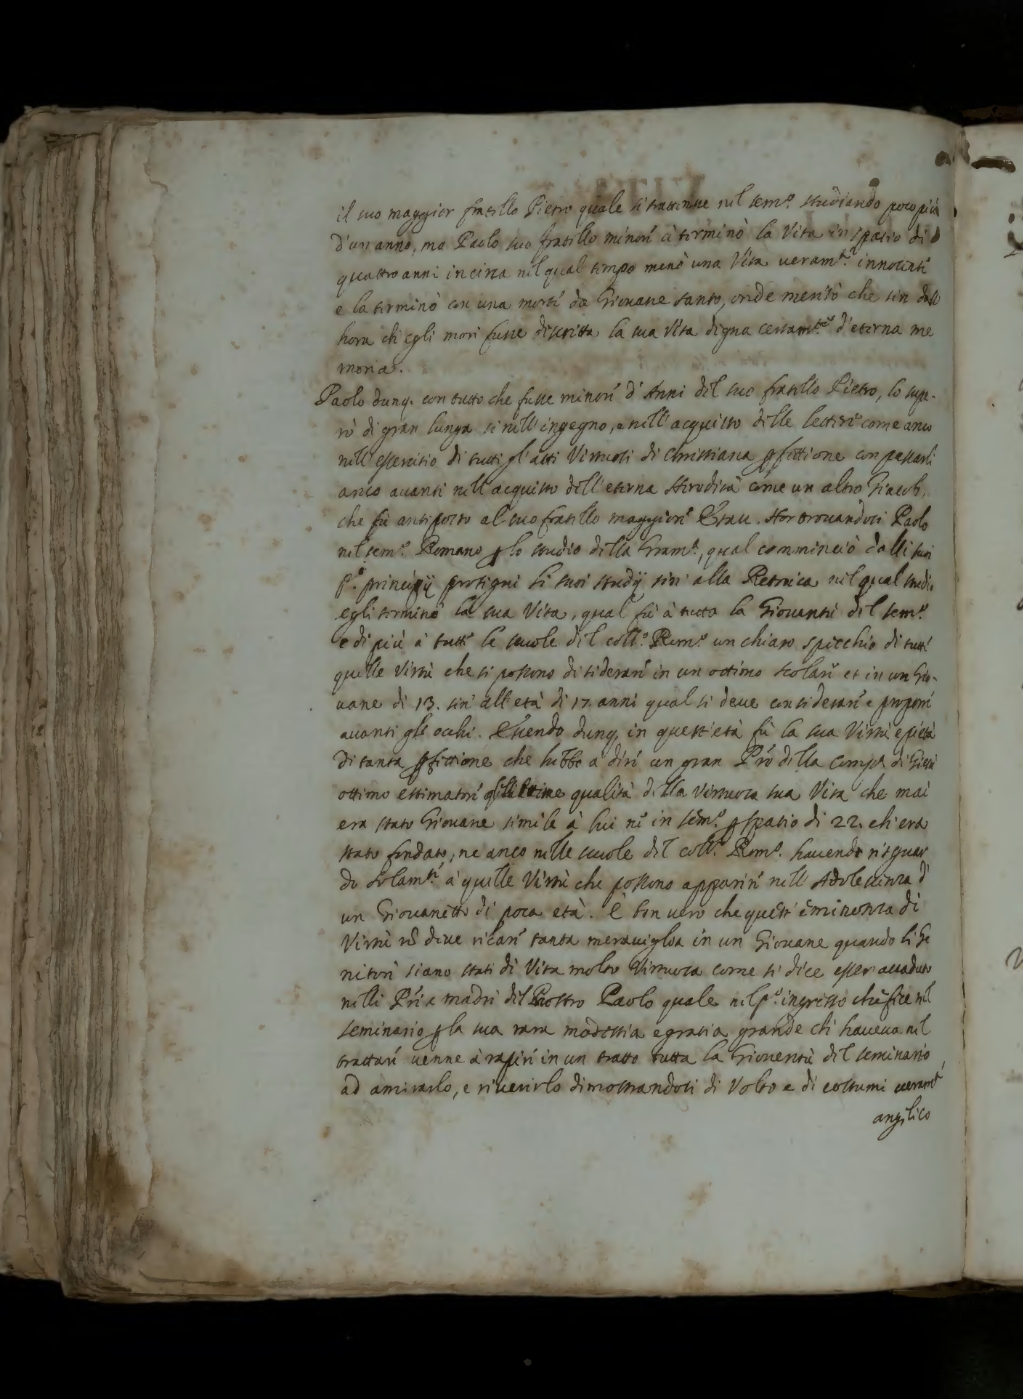 il suo maggior fratello Pietro quale si trattenne nel sem.º studiando poco più
d'un anno, ma Paolo suo fratello minore terminò la Vita in spatio di
quattro anni in circa nel qual tempo menò una Vita veram.te innocente
e la terminò con una morte da Giovane santo, onde meritò che sin dall'
hora ch'egli morì fusse descritta la sua Vita degna certam.te d'eterna me
moria.
Paolo dunq. con tutto che fusse minore d'Anni del suo fratello Pietro, lo supe-
rò di gran lunga sì nell'ingegno, e nell'acquisto delle lettere come anco
nell'essercitio di tutti gl'atti Virtuosi di Christiana perfettione con passarli
anco avanti nell'acquisto dell'eterna Heredità come un altro Giacob,
che fù anteposto al suo fratello maggiore Esau. Hor trovandosi Paolo
nel sem.º Romano per lo studio della Gram.ca, qual cominciò dalli suoi
p.i principij proseguì li suoi studij sin' alla Retorica nel qual studio
egli terminò la sua Vita, qual fù à tutta la Gioventù del sem.º
e di più à tutte le scuole del coll.º Rom.º un chiaro specchio di tutte
quelle Virtù che si possono desiderare in un ottimo scolare et in un Gio-
vane di 13. sin' all'età di 17. anni qual si deve considerare e proporre
avanti gli occhi. Essendo dunq. in quest'età fù la sua Virtù e pietà
di tanta perfettione che hebbe à dire un gran Pre della Comp.a di Giesù
ottimo estimatore qualità della virtuosa sua Vita che mai
era stato Giovane simile à lui ne in sem.º per spatio di 22. ch'era
stato fondato, ne anco nelle scuole del coll.º Rom.º havendo risguar
do solam.te a quelle Virtù che possono apparire nell'Adolescenza d'
un Giovanetto di poca età. È ben vero che quest'eminenza di
Virtù nõ deve recare tanta meraviglia in un Giovane quando li Ge
nitori siano stati di Vita molto Virtuosa come si dice esser accaduto
nelli Pre e madre del Nostro Paolo quale nel p.º ingresso che fece nel
seminario per la sua rara modestia e gratia grande che haveva nel
trattare venne à rapire in un tratto tutta la Gioventù del seminario
ad amirarlo, e riverirlo dimostrandosi di Volto e di costumi veram.te
angelico